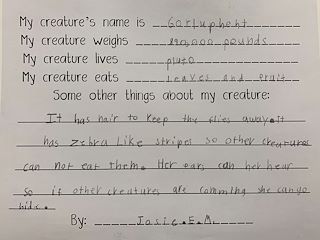 My creature's name is Gorluphent
My creature weighs 890,000 pounds
My creature lives pluto
My creature eats leaves and fruit
Some other things about my creature:
It has hair to keep the flies away. It
has zebra like stripes so other creatures
can not eat them. Her ears can her hear
so if other creatures are comming she can go
hide.
By: Josie. E. M.